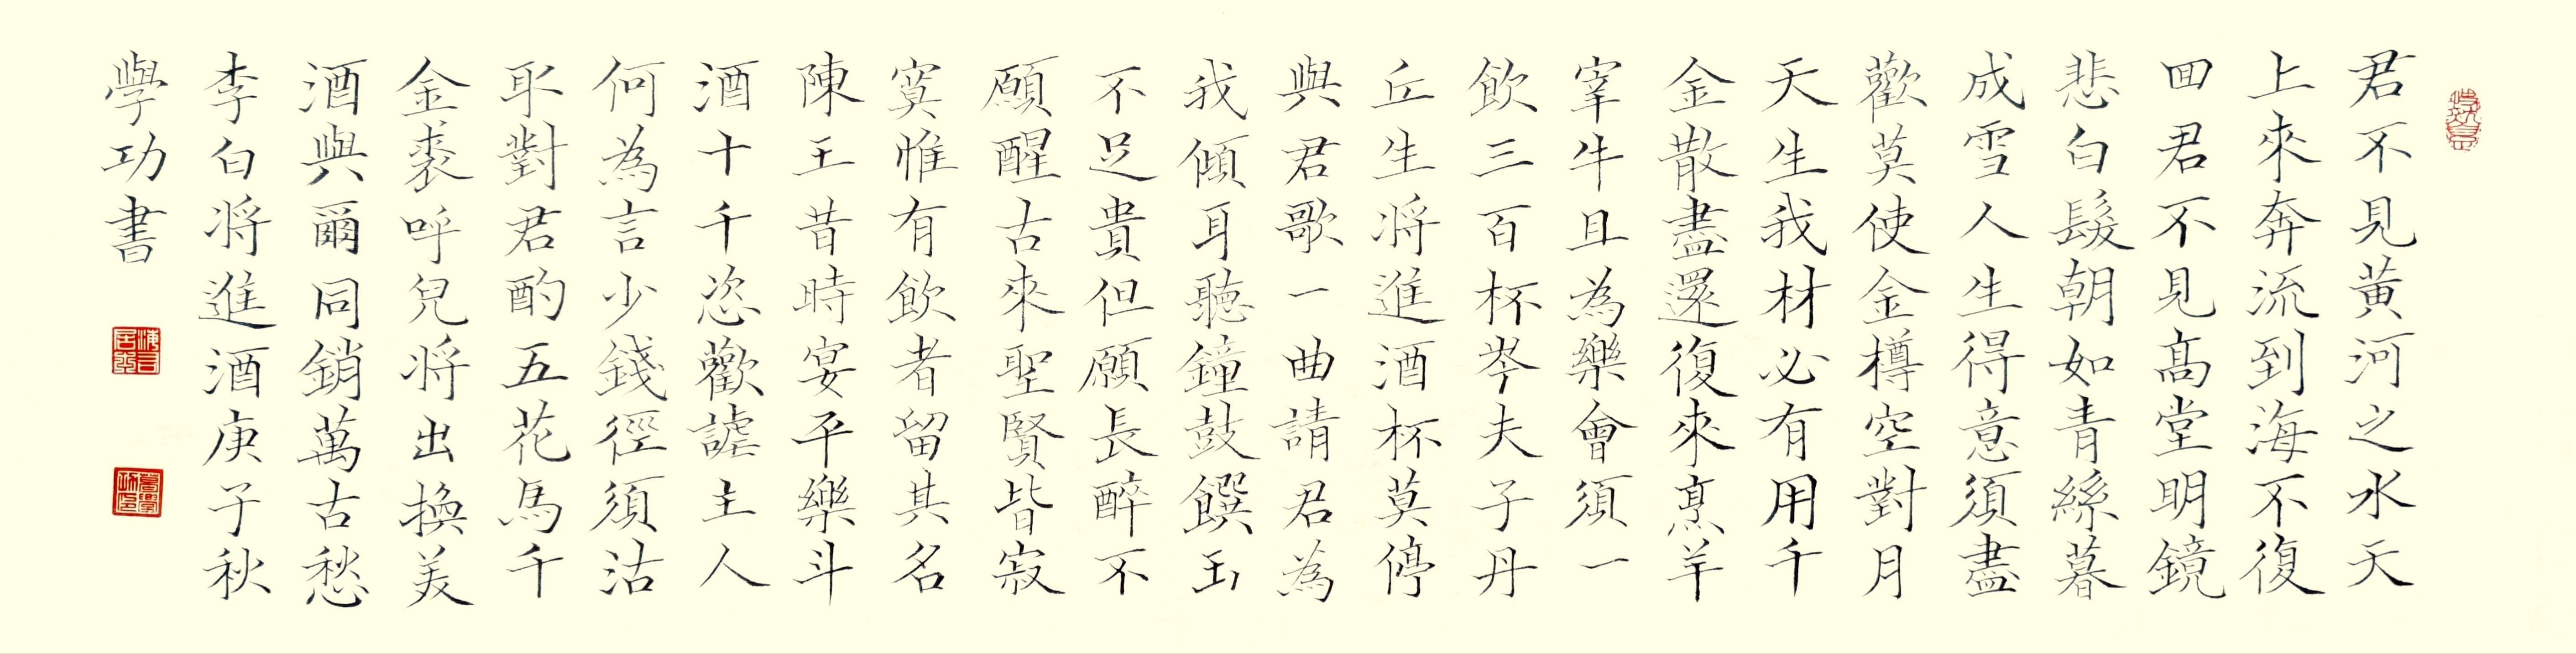 君不見黃河之水天
上來奔流到海不復
回君不見高堂明鏡
悲白髮朝如青絲暮
成雪人生得意須盡
歡莫使金樽空對月
天生我材必有用千
金散盡還復來烹羊
宰牛且為樂會須一
飲三百杯岑夫子丹
丘生將進酒杯莫停
與君歌一曲請君為
我傾耳聽鐘鼓饌玉
不足貴但願長醉不
願醒古來聖賢皆寂
寞惟有飲者留其名
陳王昔時宴平樂斗
酒十千恣歡謔主人
何為言少錢徑須沽
取對君酌五花馬千
金裘呼兒將出換美
酒與爾同銷萬古愁
李白將進酒庚子秋
學功書